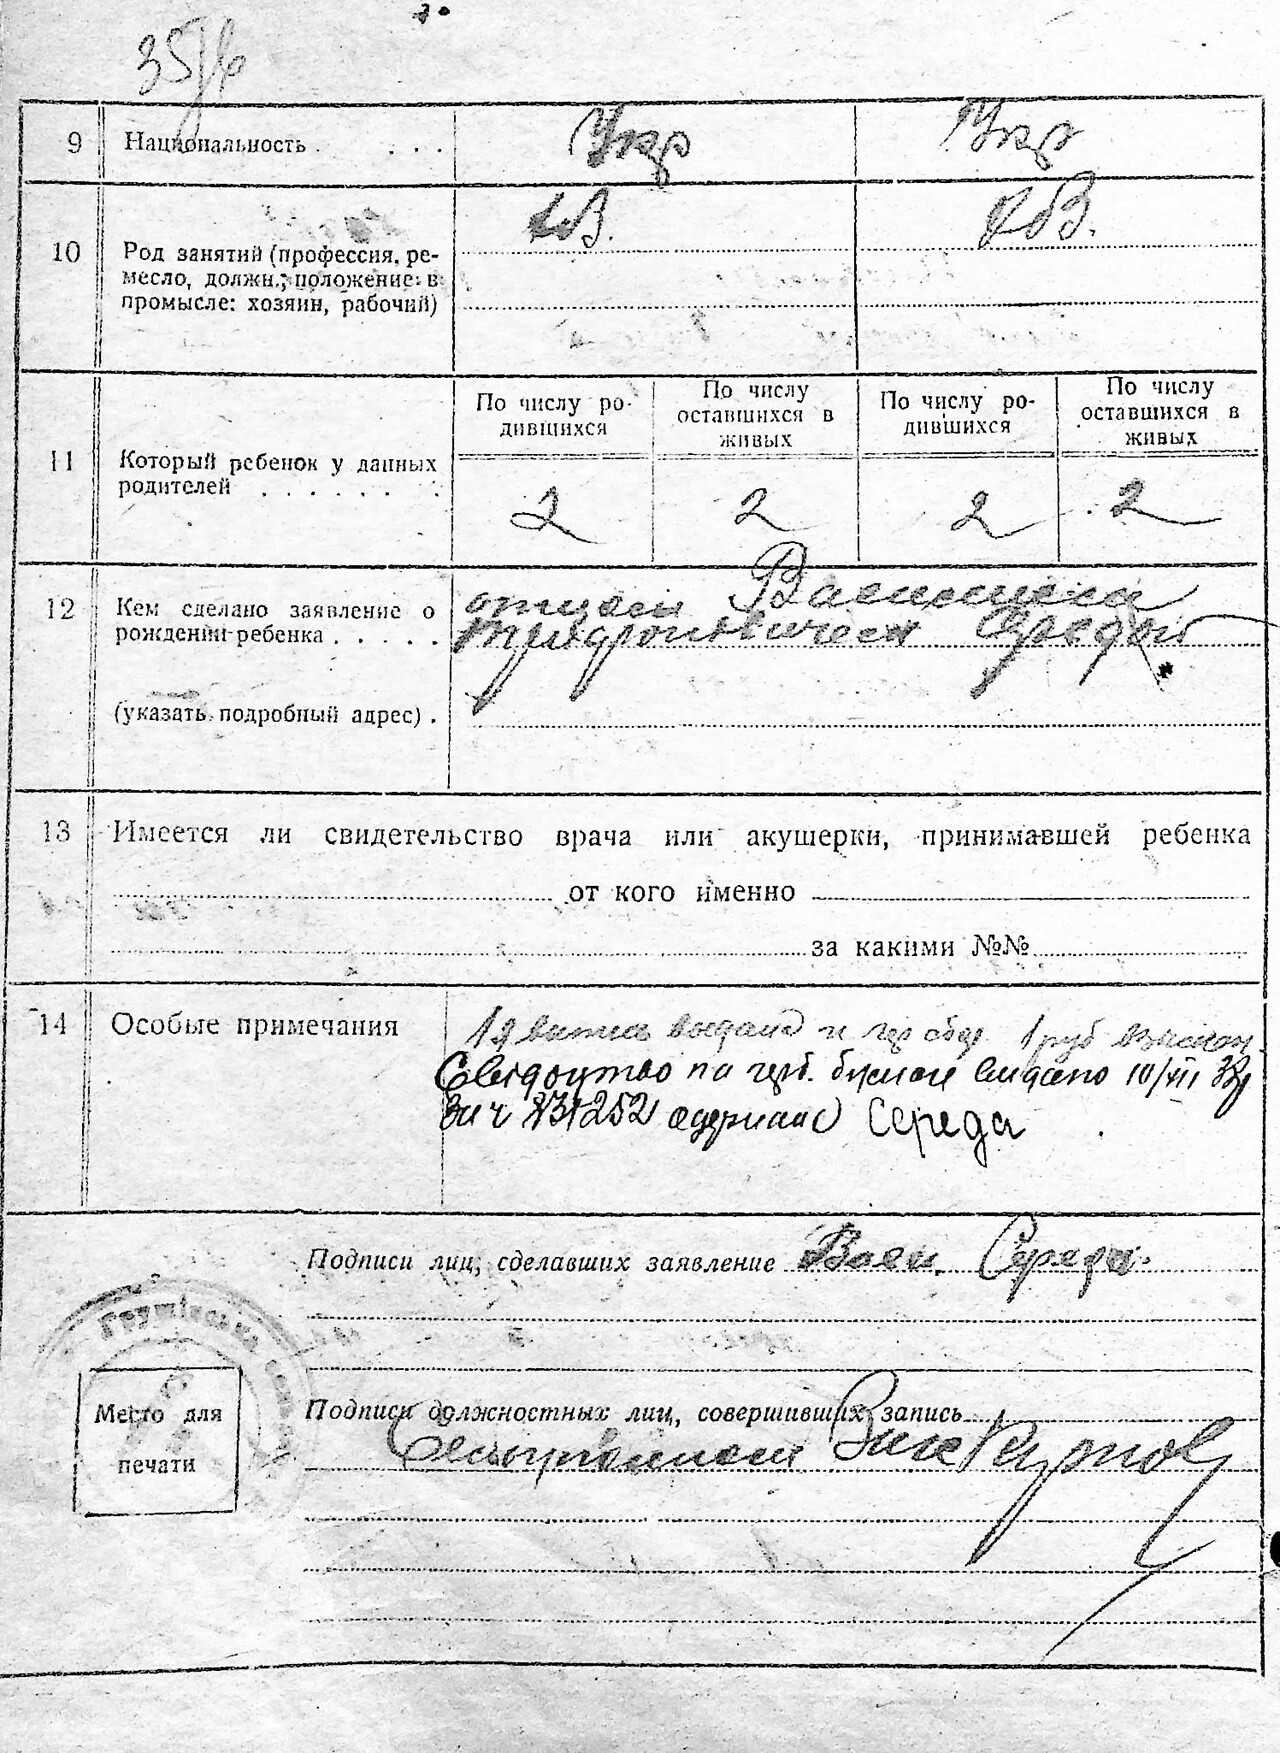 9 Национальность . . . . Укр Укр
10 Род занятий (профессия, ре-
месло, должн., положение в
промысле: хозяин, рабочий)
По числу ро-
дившихся
По числу
оставшихся в
живых
По числу ро-
дившихся
По числу
оставшихся в
живых
11 Который ребенок у данных
родителей . . . . . . .
2 2 2 2
12 Кем сделано заявление о
рождении ребенка . . . . .
отцом Василием
Трифоновичем Середой
(указать подробный адрес) .
13 Имеется ли свидетельство врача или акушерки, принимавшей ребенка
от кого именно
за какими №№
14 Особые примечания
выдана и 1 руб
Свидоцтво по герб. видано 10/VII
одержав Середа
Подписи лиц, сделавших заявление Васи. Середа
Грушівська
Подписи должностных лиц, совершивших запись
Место для
печати